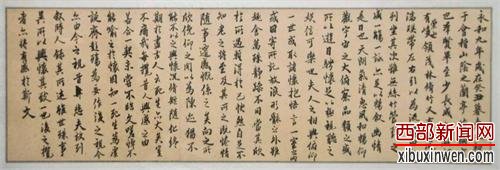 永和九年歲在癸丑暮春
于會稽山陰之蘭亭
也羣賢畢至少長咸集
有峻領茂林脩竹又有
湍暎帶左右引以為流觴
列坐其次雖無絲竹管弦之
盛一觴一詠亦足以暢敘幽情
是日也天朗氣清惠風和暢仰
觀宇宙之大俯察品類之盛
所以遊目騁懷足以極視聽之
娛信可樂也夫人之相與俯仰
一世或取諸懷抱悟言一室之內
或因寄所託放浪形骸之外雖
趣舍萬殊靜躁不同當其欣
於所遇暫得於己快然自足不
知老之將至及其所之既惓情
隨事遷感慨係之矣向之所
欣俛仰之間以為陳迹猶不
能不以之興懷況脩短隨化終
期於盡古人云死生亦大矣豈
不痛哉每攬昔人興感之由
若合一契未嘗不臨文嗟悼不
能喻之於懷固知一死生為虛
誕齊彭殤為妄作後之視今
亦由今之視昔悲夫故列
敘時人錄其所述雖世殊事
異所以興懷其致一也後之攬
者亦將有感於斯文
西部新闻网
xibuxinwen.com